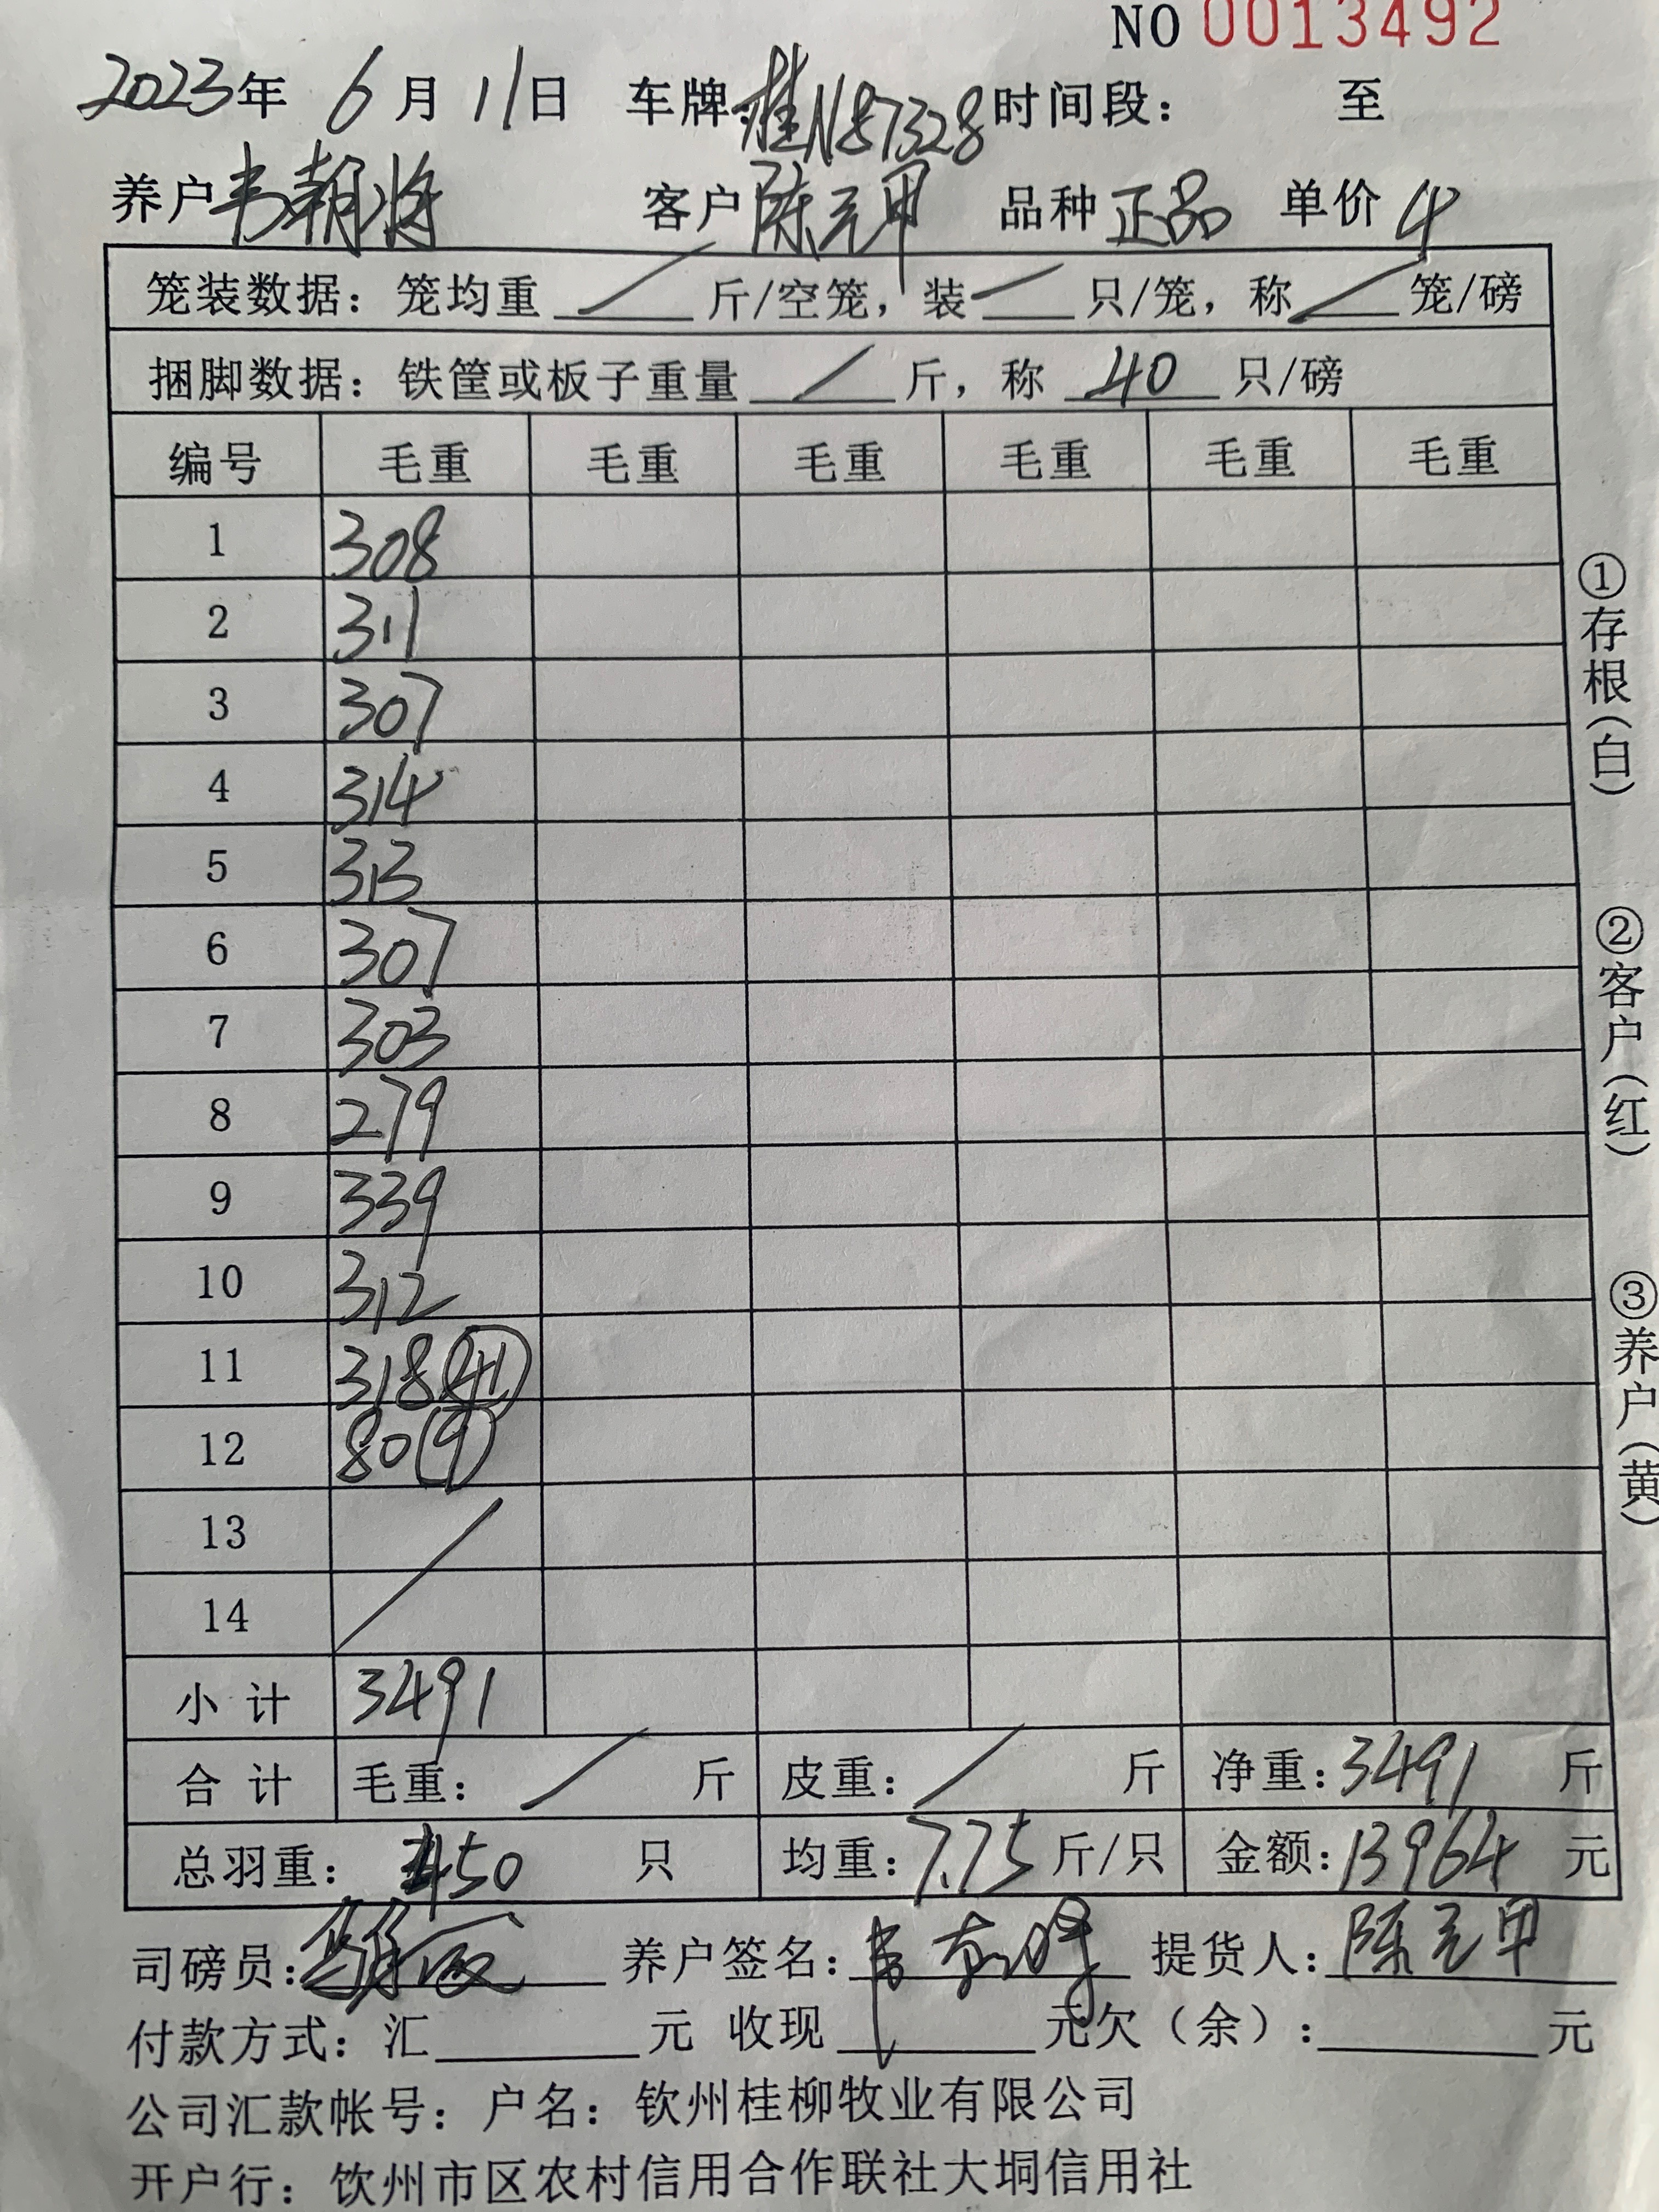 NO 0013492
2023年 6月 11日 车牌:桂N87328 时间段: 至
养户 韦朝将 客户 陈元甲 品种 正品 单价 4
笼装数据:笼均重 / 斤/空笼,装 / 只/笼,称 / 笼/磅
捆脚数据:铁筐或板子重量 / 斤,称 40 只/磅
编号 毛重 毛重 毛重 毛重 毛重 毛重
1 308
2 311
3 307
4 314
5 313
6 307
7 303
8 279
9 339
10 312
11 318 (41)
12 80 (9)
13
14
小计 3491
合计 毛重: / 斤 皮重: / 斤 净重:3491 斤
总羽重: 450 只 均重:7.75 斤/只 金额:13964 元
司磅员: 养户签名:韦 提货人:陈元甲
付款方式:汇 元 收现 元欠(余): 元
公司汇款帐号:户名:钦州桂柳牧业有限公司
开户行:钦州市区农村信用合作联社大垌信用社
①存根(白)
②客户(红)
③养户(黄)